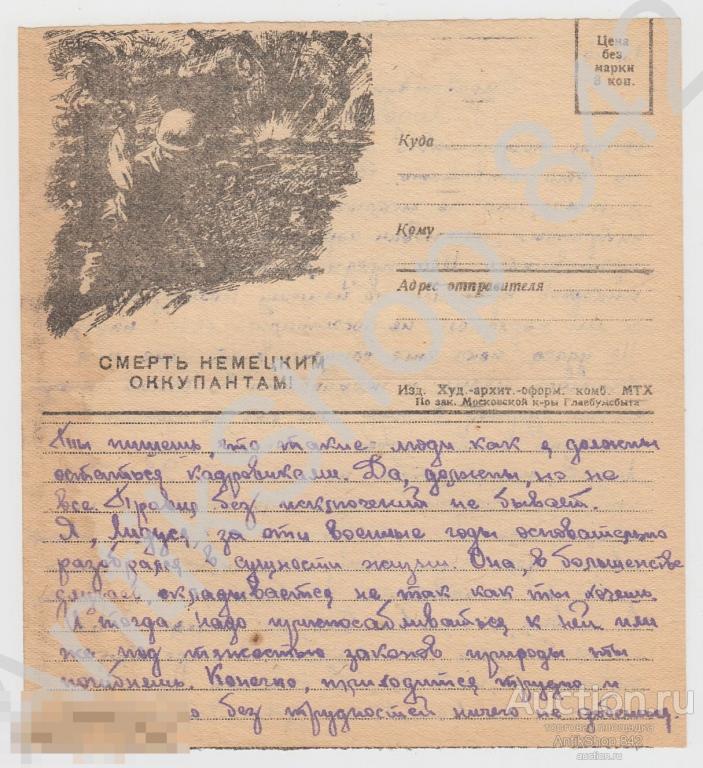 Цена
без
марки
3 коп.
Куда
Кому
Адрес отправителя
СМЕРТЬ НЕМЕЦКИМ
ОККУПАНТАМ!
Изд. Худ.-архит.-оформ. комб. МТХ
По зак. Московской к-ры Главбумсбыта
Ты пишешь, что такие люди как я должны
остаться кадровиками. Да, должны, но не
все. Правил без исключений не бывает.
Я, Лидуся, за эти военные годы основательно
разобрался в сущности жизни. Она, в большенстве
случаев, складывается не так как ты хочешь.
И тогда надо приспосабливаться к ней или
же под тяжестью законов природы ты
погибнешь. Конечно, приходится трудно и
но без трудностей ничего не добьешься.
AntikShop 842
Auction.ru
торговая площадка
AntikShop 842
auction.ru